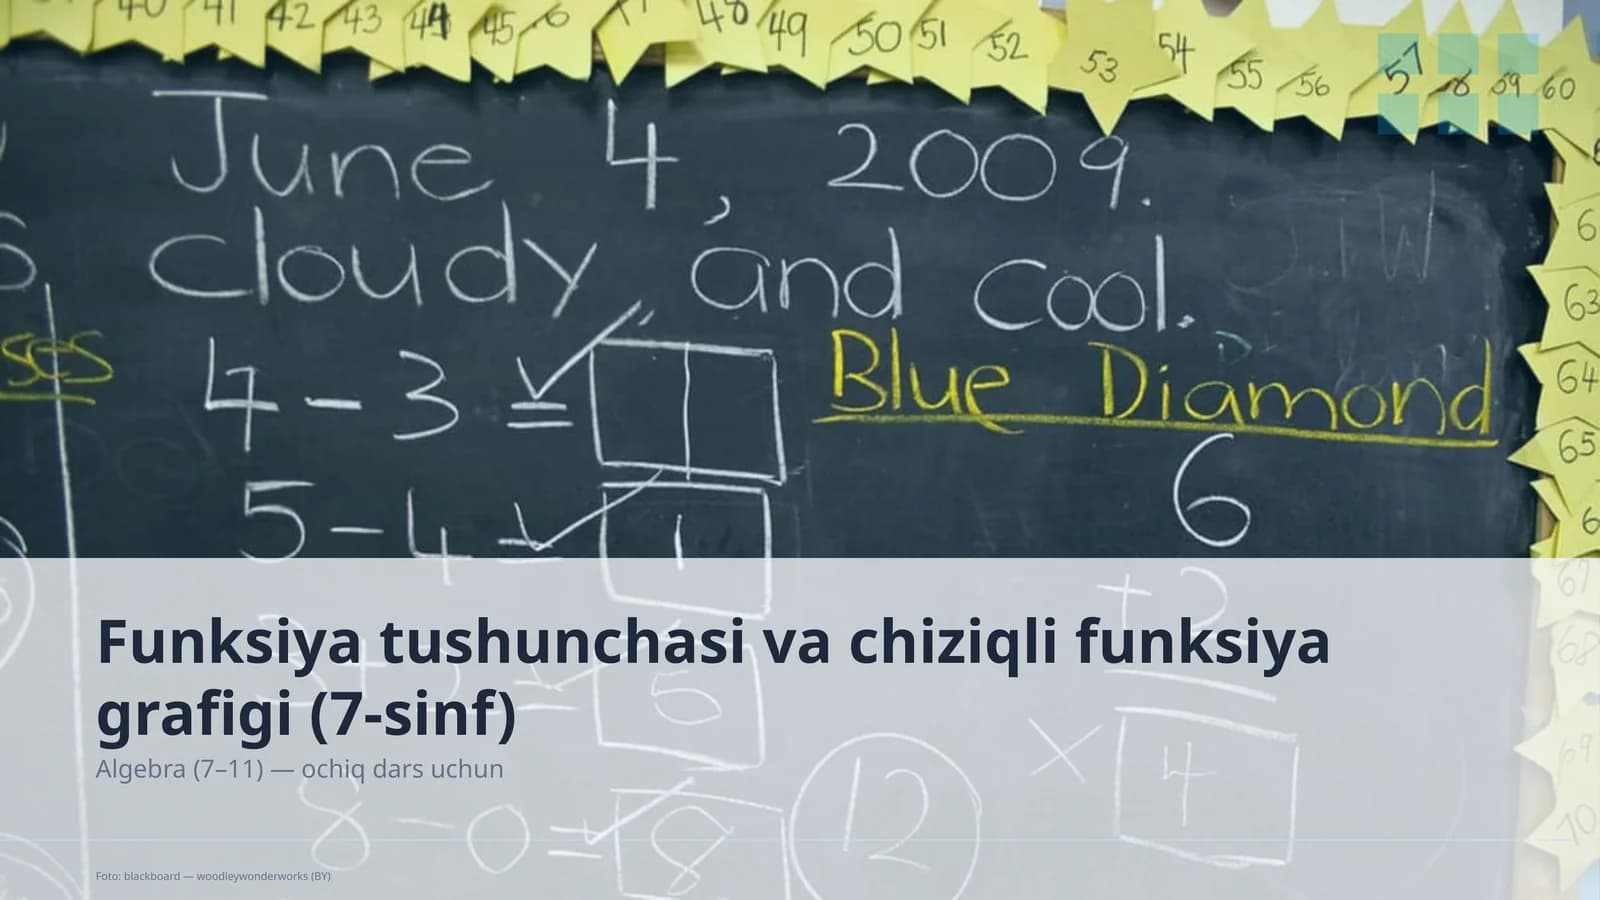 40 41 42 43 44 45 48 49 50 51 52 53 54 55 56 57 58 59 60
June 4, 2009.
cloudy, and cool.
ses
4 - 3 =
Blue Diamond
5 - 4 = 1
6
+ 2
63
64
65
67
68
69
70
5
× 4
8 - 0 = 8
12
Funksiya tushunchasi va chiziqli funksiya
grafigi (7-sinf)
Algebra (7–11) — ochiq dars uchun
Foto: blackboard — woodleywonderworks (BY)